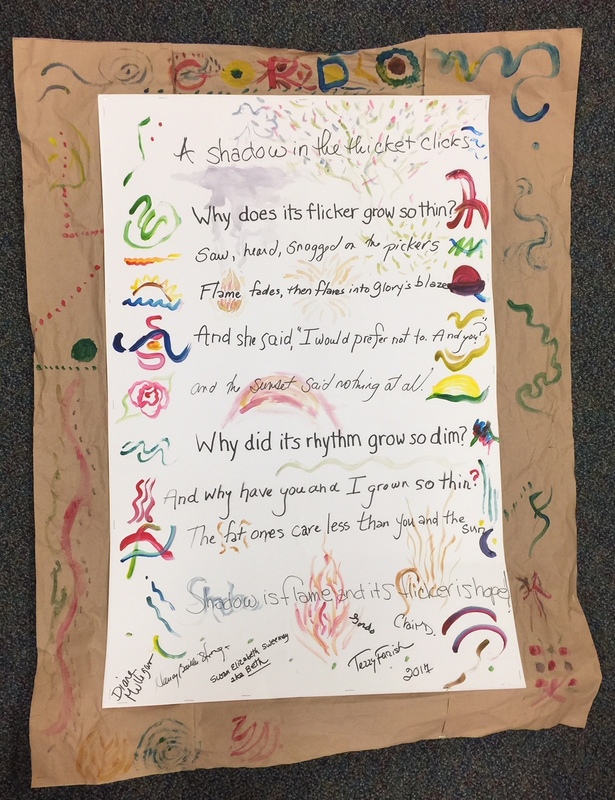 GORDON
A shadow in the thicket clicks.
Why does its flicker grow so thin?
Saw, heard, snagged on the pickers
Flame fades, then flares into glory's blaze
And she said, "I would prefer not to. And you?"
and the sunset said nothing at all!
Why did its rhythm grow so dim?
And why have you and I grown so thin?
The fat ones care less than you and the sun
Shadow is flame and its flicker is hope!
Gordo
Claire D.
Diane Mulligan
Susan Elizabeth Sweeney
aka Beth
Terry Farish
2017